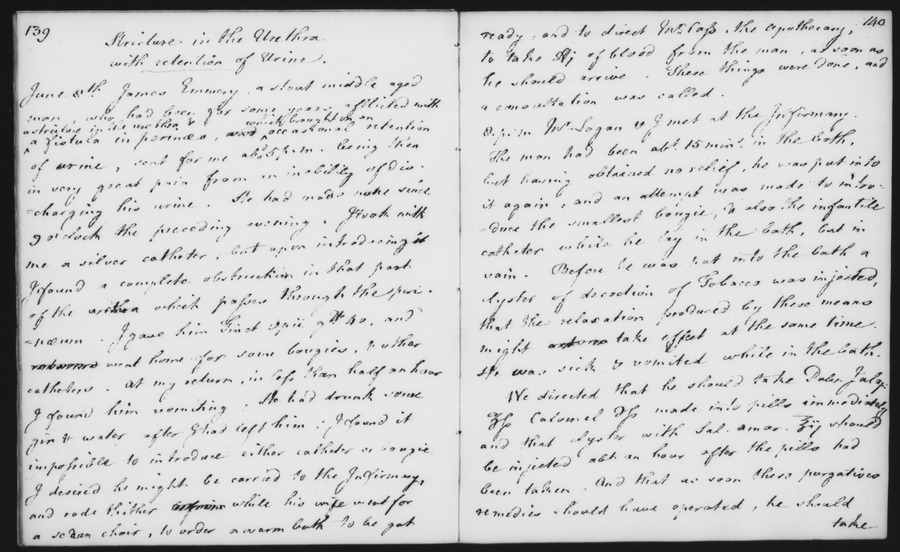 139
Stricture in the Urethra
with retention of Urine.
June 8th. James Emmery, a stout middle aged
man, who had been for some years afflicted with
a stricture in the urethra & which brought on an
a fistula in perinæo, occasional retention
of urine, sent for me abt. 5, p.m. being then
in very great pain from an inability of dis-
-charging his urine. He had made none since
9 o'clock the preceding evening. I took with
me a silver catheter, but upon introducing it
I found a complete obstruction in that part
of the urethra which passes through the peri-
-næum. I gave him Tinct. Opii gtt. 40, and
went home for some bougies, & other
catheters. At my return, in less than half an hour
I found him vomiting. He had drunk some
gin & water after I had left him: I found it
impossible to introduce either catheter or bougie.
I desired he might be carried to the Infirmary,
and rode thither while his wife went for
a sedan chair, to order a warm bath to be got
140
ready, and to direct Mr. Cass, the apothecary,
to take ℔j of blood from the man, as soon as
he should arrive. These things were done, and
a consultation was called.
8. p.m. Mr. Logan & I met at the Infirmary.
The man had been abt. 15 min. in the bath,
but having obtained no relief, he was put into
it again, and an attempt was made to intro-
-duce the smallest bougie, & also the infantile
catheter while he lay in the bath, but in
vain. Before he was put into the bath a
clyster of decoction of Tobacco was injected,
that the relaxation produced by these means
might take effect at the same time.
He was sick, & vomited while in the bath.
We directed that he should take Pulv. Jalap:
℈ß Calomel ℈ß made into pills immediately
and that clyster with Sal. amar. ℥ij should
be injected abt. an hour after the pills had
been taken. And that as soon these purgative
remedies should have operated, he should
take